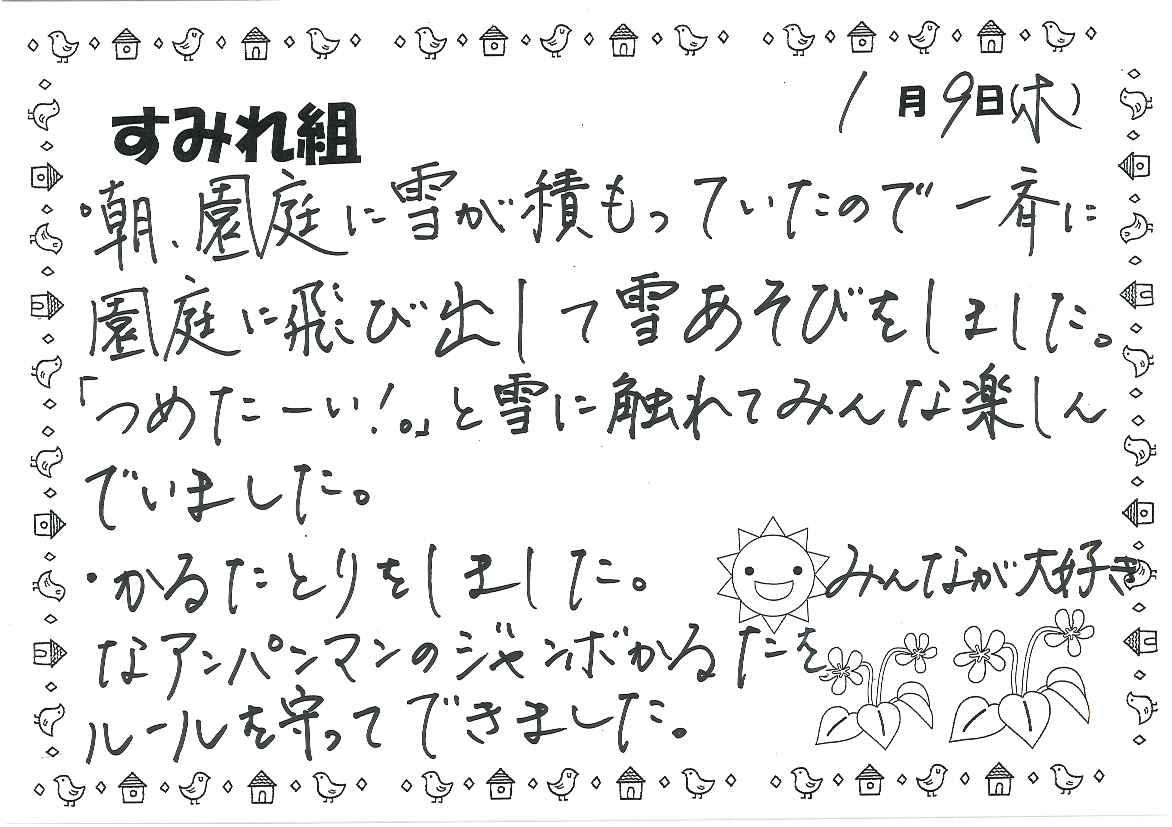 1月9日(木)
すみれ組
・朝、園庭に雪が積もっていたので一斉に
園庭に飛び出して雪あそびをしました。
「つめたーい!。」と雪に触れてみんな楽しん
でいました。
・かるたとりをしました。 みんなが大好き
なアンパンマンのジャンボかるたを
ルールを守ってできました。